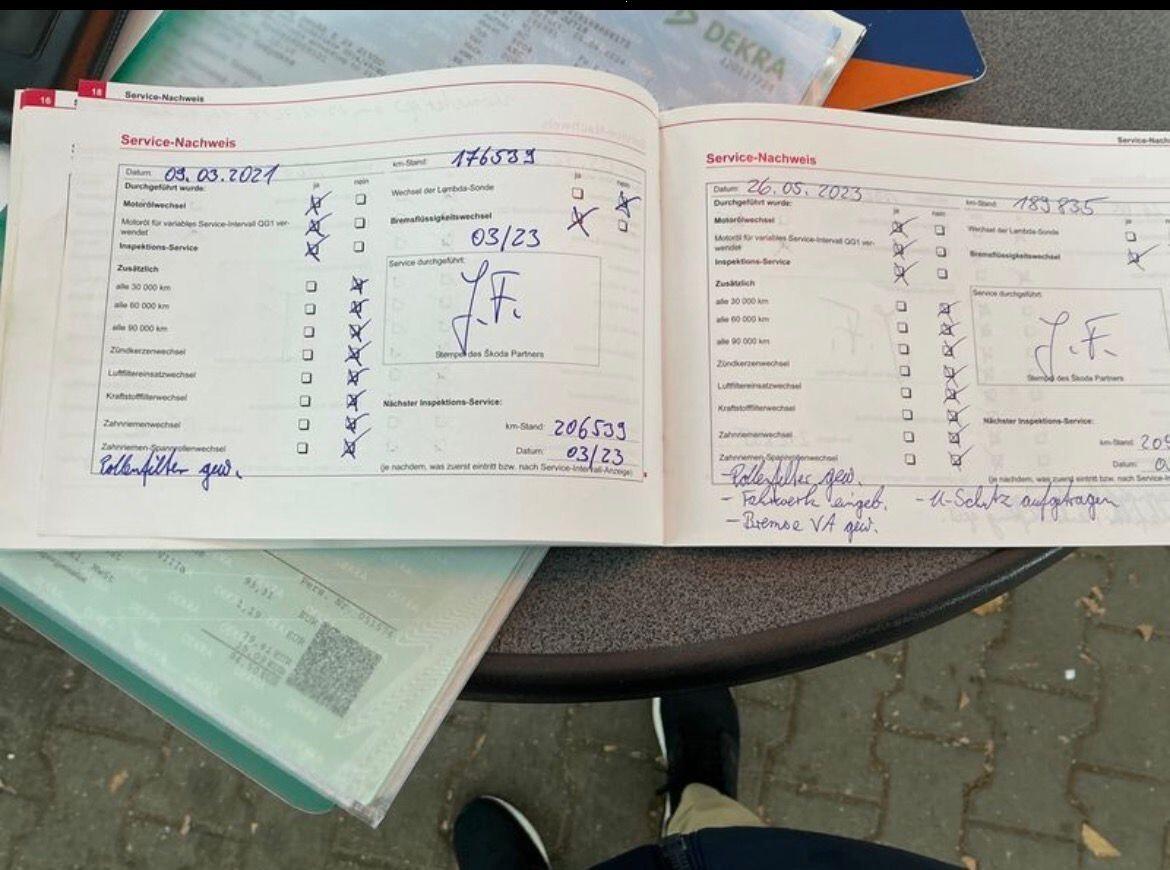 DEKRA
16
18 Service-Nachweis
Service-Nachweis
Datum: 09.03.2021
km-Stand: 176539
Durchgeführt wurde: ja nein
Motorölwechsel
Motoröl für variables Service-Intervall QG1 ver-
wendet
Inspektions-Service
Zusätzlich
alle 30 000 km
alle 60 000 km
alle 90 000 km
Zündkerzenwechsel
Luftfiltereinsatzwechsel
Kraftstofffilterwechsel
Zahnriemenwechsel
Zahnriemen-Spannrollenwechsel
Pollenfilter gew.
ja nein
Wechsel der Lambda-Sonde
Bremsflüssigkeitswechsel
03/23
Service durchgeführt:
J.F.
Stempel des Škoda Partners
Nächster Inspektions-Service:
km-Stand: 206539
Datum: 03/23
(je nachdem, was zuerst eintritt bzw. nach Service-Intervall-Anzeige)
Service-Nachweis
Datum: 26.05.2023
km-Stand: 189835
Durchgeführt wurde: ja nein
Motorölwechsel
Motoröl für variables Service-Intervall QG1 ver-
wendet
Inspektions-Service
Zusätzlich
alle 30 000 km
alle 60 000 km
alle 90 000 km
Zündkerzenwechsel
Luftfiltereinsatzwechsel
Kraftstofffilterwechsel
Zahnriemenwechsel
Zahnriemen-Spannrollenwechsel
- Pollenfilter gew.
- Fahrwerk eingeb.
- Bremse VA gew.
- U-Schutz aufgetragen
ja
Wechsel der Lambda-Sonde
Bremsflüssigkeitswechsel
Service durchgeführt:
J.F.
Stempel des Škoda Partners
Nächster Inspektions-Service:
km-Stand:
Datum:
(je nachdem, was zuerst eintritt bzw. nach
93,31
1,19 EUR